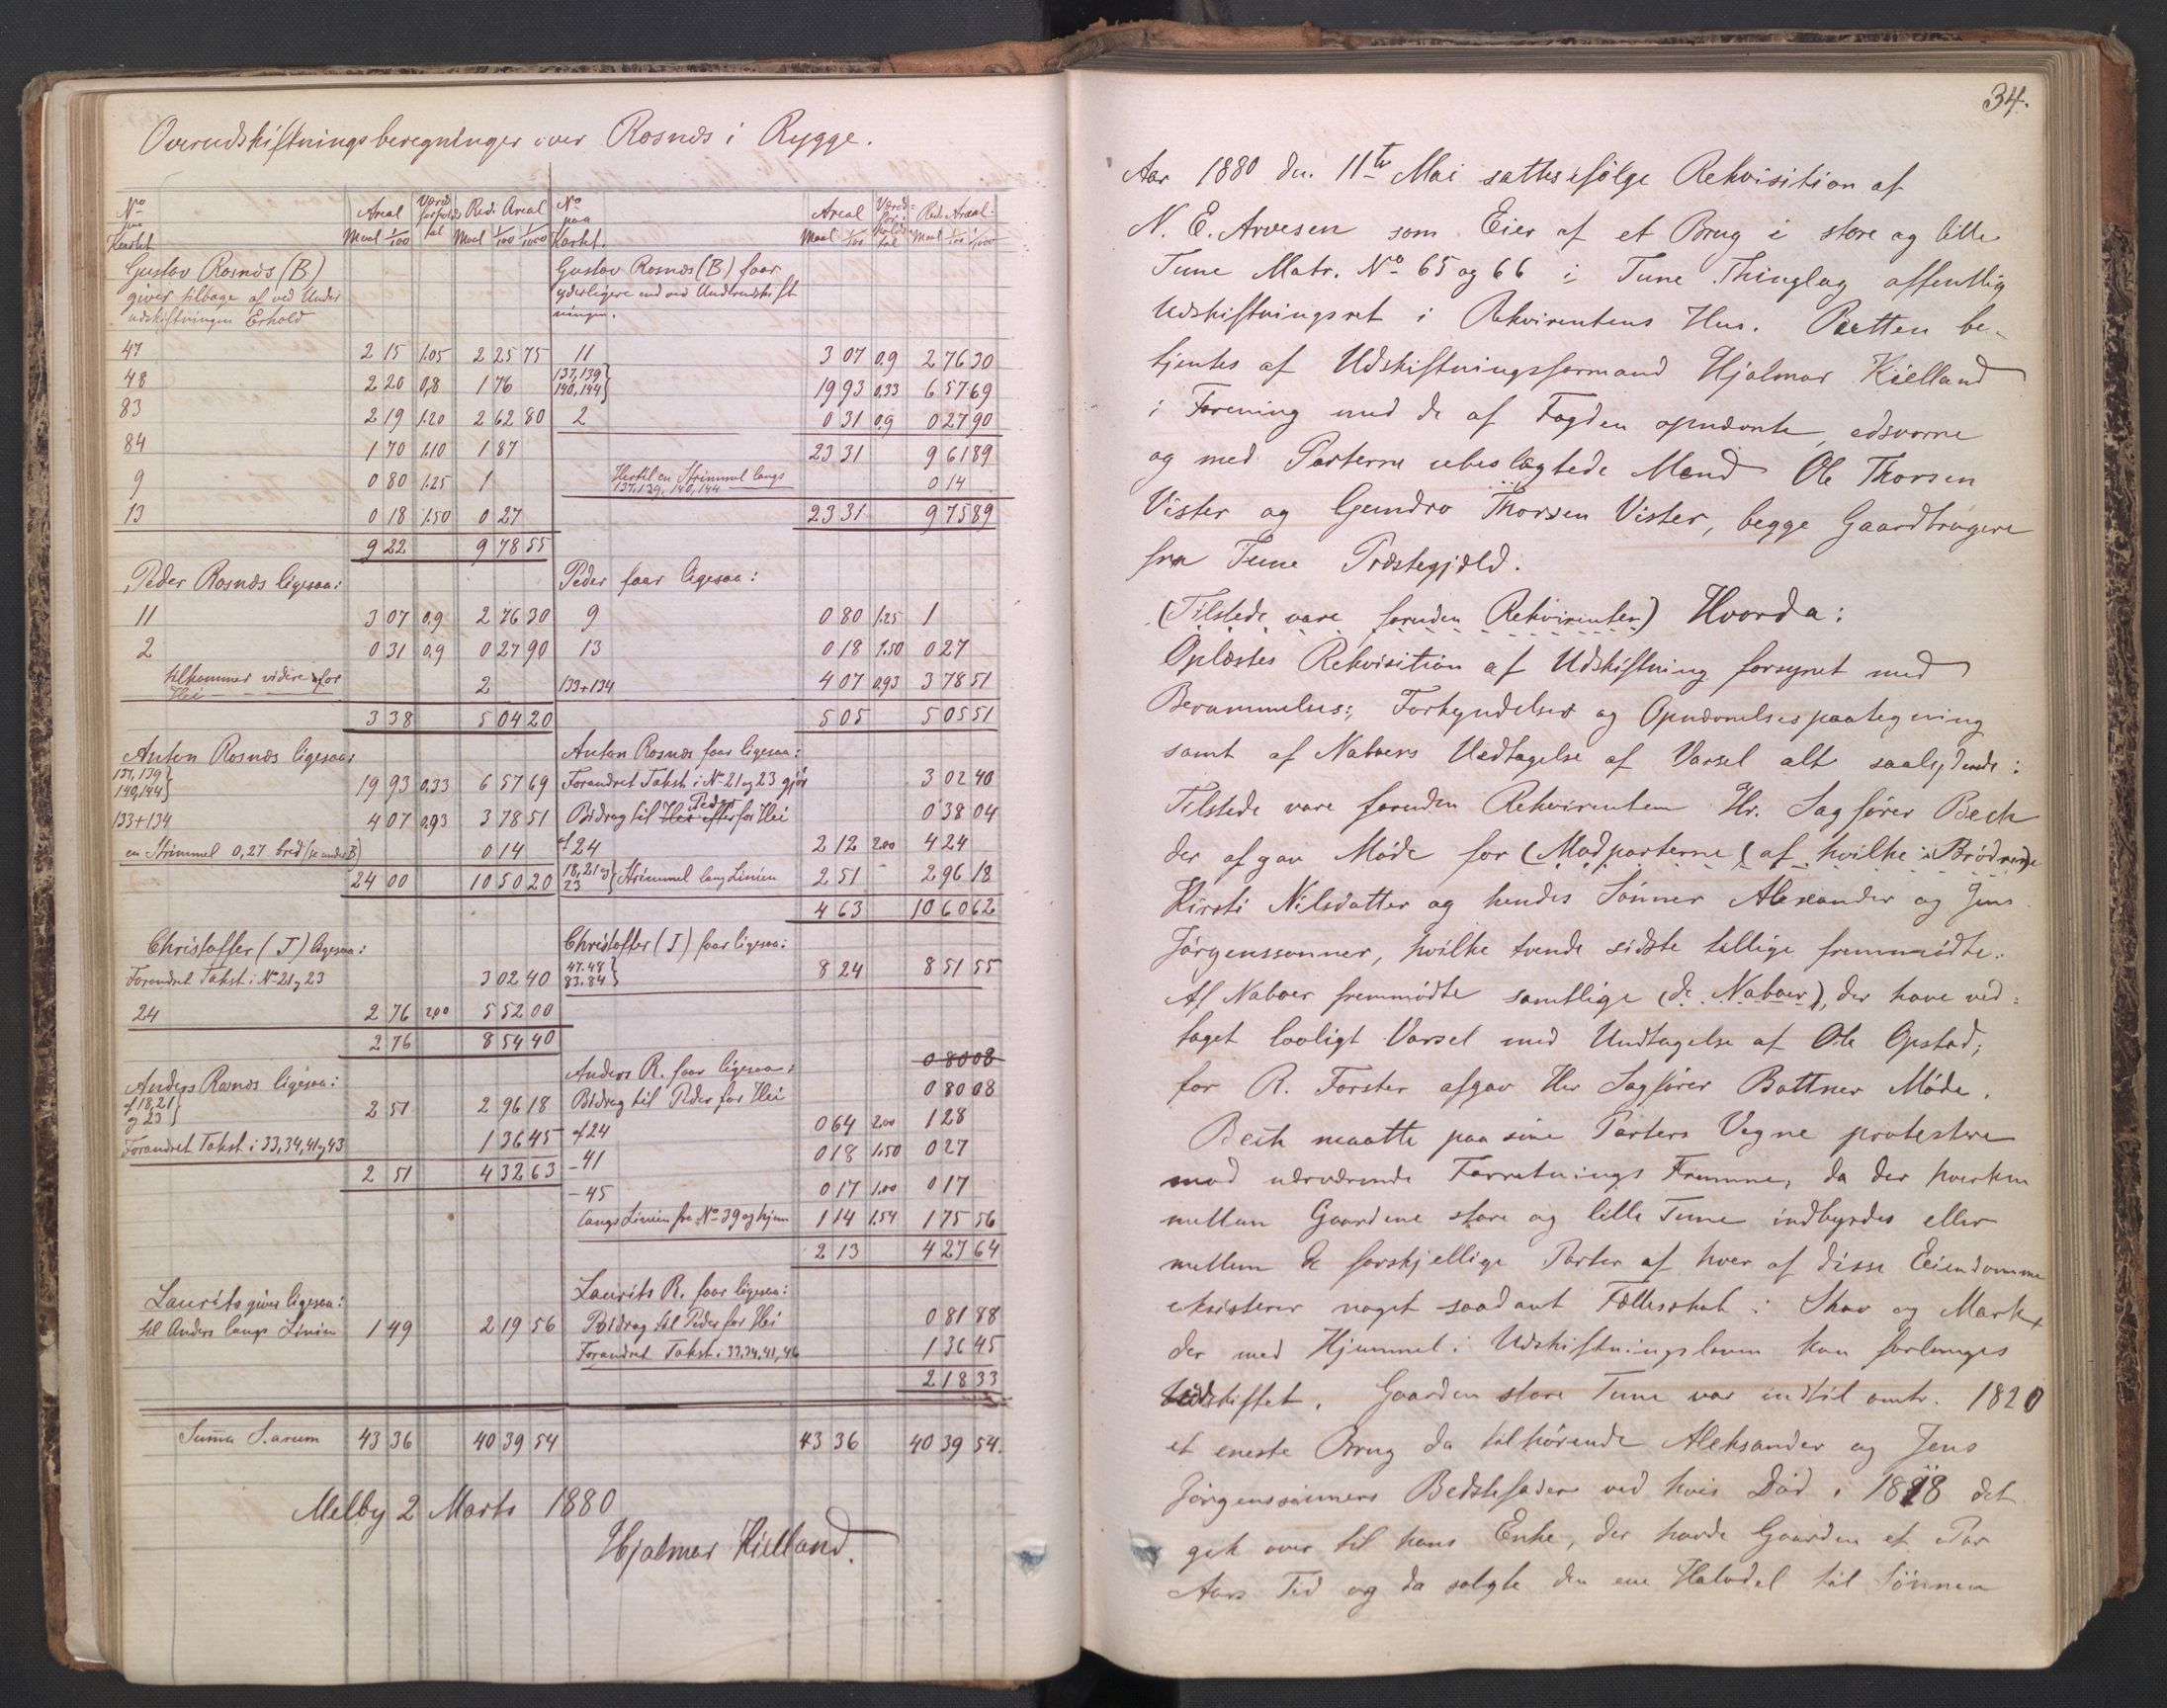 Overudskiftningsberegninger over Rosnæs i Rygge.
No paa Kartet | Areal Maal 1/100 | Værdforholdstal | Red. Areal Maal 1/100 1/1000 | No paa Kartet. | Areal Maal 1/100 | Værdiforholdstal | Red. Areal. Maal 1/100 1/1000
Gustav Rosnæs (B)
giver tilbage af ved Under
udskiftningen Erhold
47 2 15 1.05 2 25 75
48 2 20 0,8 1 76
83 2 19 1.20 2 62 80
84 1 70 1.10 1 87
9 0 80 1.25 1
13 0 18 1.50 0 27
9 22 9 78 55
Peder Rosnæs ligesaa:
11 3 07 0.9 2 76 30
2 0 31 0.9 0 27 90
tilkommer videre for
Hei 2
3 38 5 04 20
Anton Rosnæs ligesaa:
137,139
140,144} 19 93 0.33 6 57 69
133+134 4 07 0.93 3 78 51
en Strimmel 0,27 bred (se under B) 0 14
24 00 10 50 20
Christoffer (J) ligesaa:
Forandret Takst i No 21 og 23 3 02 40
24 2 76 2,00 5 52 00
2 76 8 54 40
Anders Rosnæs ligesaa:
af 18,21
og 23} 2 51 2 96 18
Forandret Takst i 33,34,41 og 43 1 36 45
2 51 4 32 63
Laurits giver ligesaa:
til Anders langs Linien 1 49 2 19 56
Suma S.arum 43 36 40 39 54
Gustav Rosnæs (B) faar
yderligere end ved Underudskift
ningen.
11 3 07 0.9 2 76 30
137,139
140,144} 19 93 0.33 6 57 69
2 0 31 0.9 0 27 90
23 31 9 61 89
Hertil en Strimmel langs
137,139, 140,144 0 14
23 31 9 75 89
Peder faar ligesaa:
9 0 80 1.25 1
13 0 18 1.50 0 27
133+134 4 07 0.93 3 78 51
5 05 5 05 51
Anton Rosnæs faar ligesaa:
Forandret Takst i No 21 og 23 gjør 3 02 40
Bidrag til Peder for Hei 0 38 04
af 24 2 12 2.00 4 24
18,21 og
23} Strimmel lang Linien 2 51 2 96 18
4 63 10 60 62
Christoffer (J) faar ligesaa:
47.48
83.84} 8 24 8 51 55
0 80 08
Anders R. faar ligesaa:
Bidrag til Peder for Hei 0 80 08
af 24 0 64 2.00 1 28
- 41 0 18 1.50 0 27
- 45 0 17 1.00 0 17
langs Linien fra No 39 og hjem 1 14 1.54 1 75 56
2 13 4 27 64
Laurits R. faar ligesaa:
Bidrag til Peder for Hei 0 81 88
Forandret Takst i 33,34,41,46 1 36 45
2 18 33
43 36 40 39 54.
Melby 2 Marts 1880
Hjalmar Kielland.
34.
Aar 1880 den 11te Mai sattes ifølge Rekvisition af
N. E. Arvesen som Eier af et Brug i store og lille
Tune Matr. No 65 og 66 i Tune Thinglag offentlig
Udskiftningsret i Rekvirentens Hus. Retten be-
tjentes af Udskiftningsformand Hjalmar Kielland
i Forening med de af Fogden opnævnte, edsvorne
og med Parterne ubeslægtede Mænd Ole Thorsen
Vister og Gundro Thorsen Vister, begge Gaardbrugere
fra Tune Præstegjæld.
(Tilstede vare foruden Rekvirenten) Hvorda:
Oplæstes Rekvisition af Udskiftning forsynet med
Berammelses, Forkyndelses og Opnævnelsespaategning
samt af Naboers Vedtagelse af Varsel alt saalydende:
Tilstede vare foruden Rekvirenten Hr. Sagfører Beck
der afgav Møde for (Modparterne (af hvilke i Brødrene
Kirsti Nilsdatter og hendes Sønner Alexander og Jens
Jørgenssønner, hvilke tvende sidste tillige fremmødte.
Af Naboer fremmødte samtlige (de Naboer), der have ved=
taget lovligt Varsel med Undtagelse af Ole Opstad;
for R. Forster afgav Hr Sagfører Bøttner Møde.
Beck maatte paa sine Parters Vegne protestere
mod nærværende Forretnings Fremme, da der hverken
mellem Gaardene store og lille Tune indbyrdes eller
mellem de forskjellige Parter af hver af disse Eiendomme
eksisterer noget saadant Fællesskab i Skov og Mark,
der med Hjemmel i Udskiftningsloven kan forlanges
Udskiftet. Gaarden store Tune var indtil omtr. 1820
et eneste Brug da tilhørende Aleksander og Jens
Jørgenssønners Bedstefader ved hvis Død i 1818 det
gik over til hans Enke, der havde Gaarden et Par
Aars Tid og da solgte den ene Halvdel til Sønnen